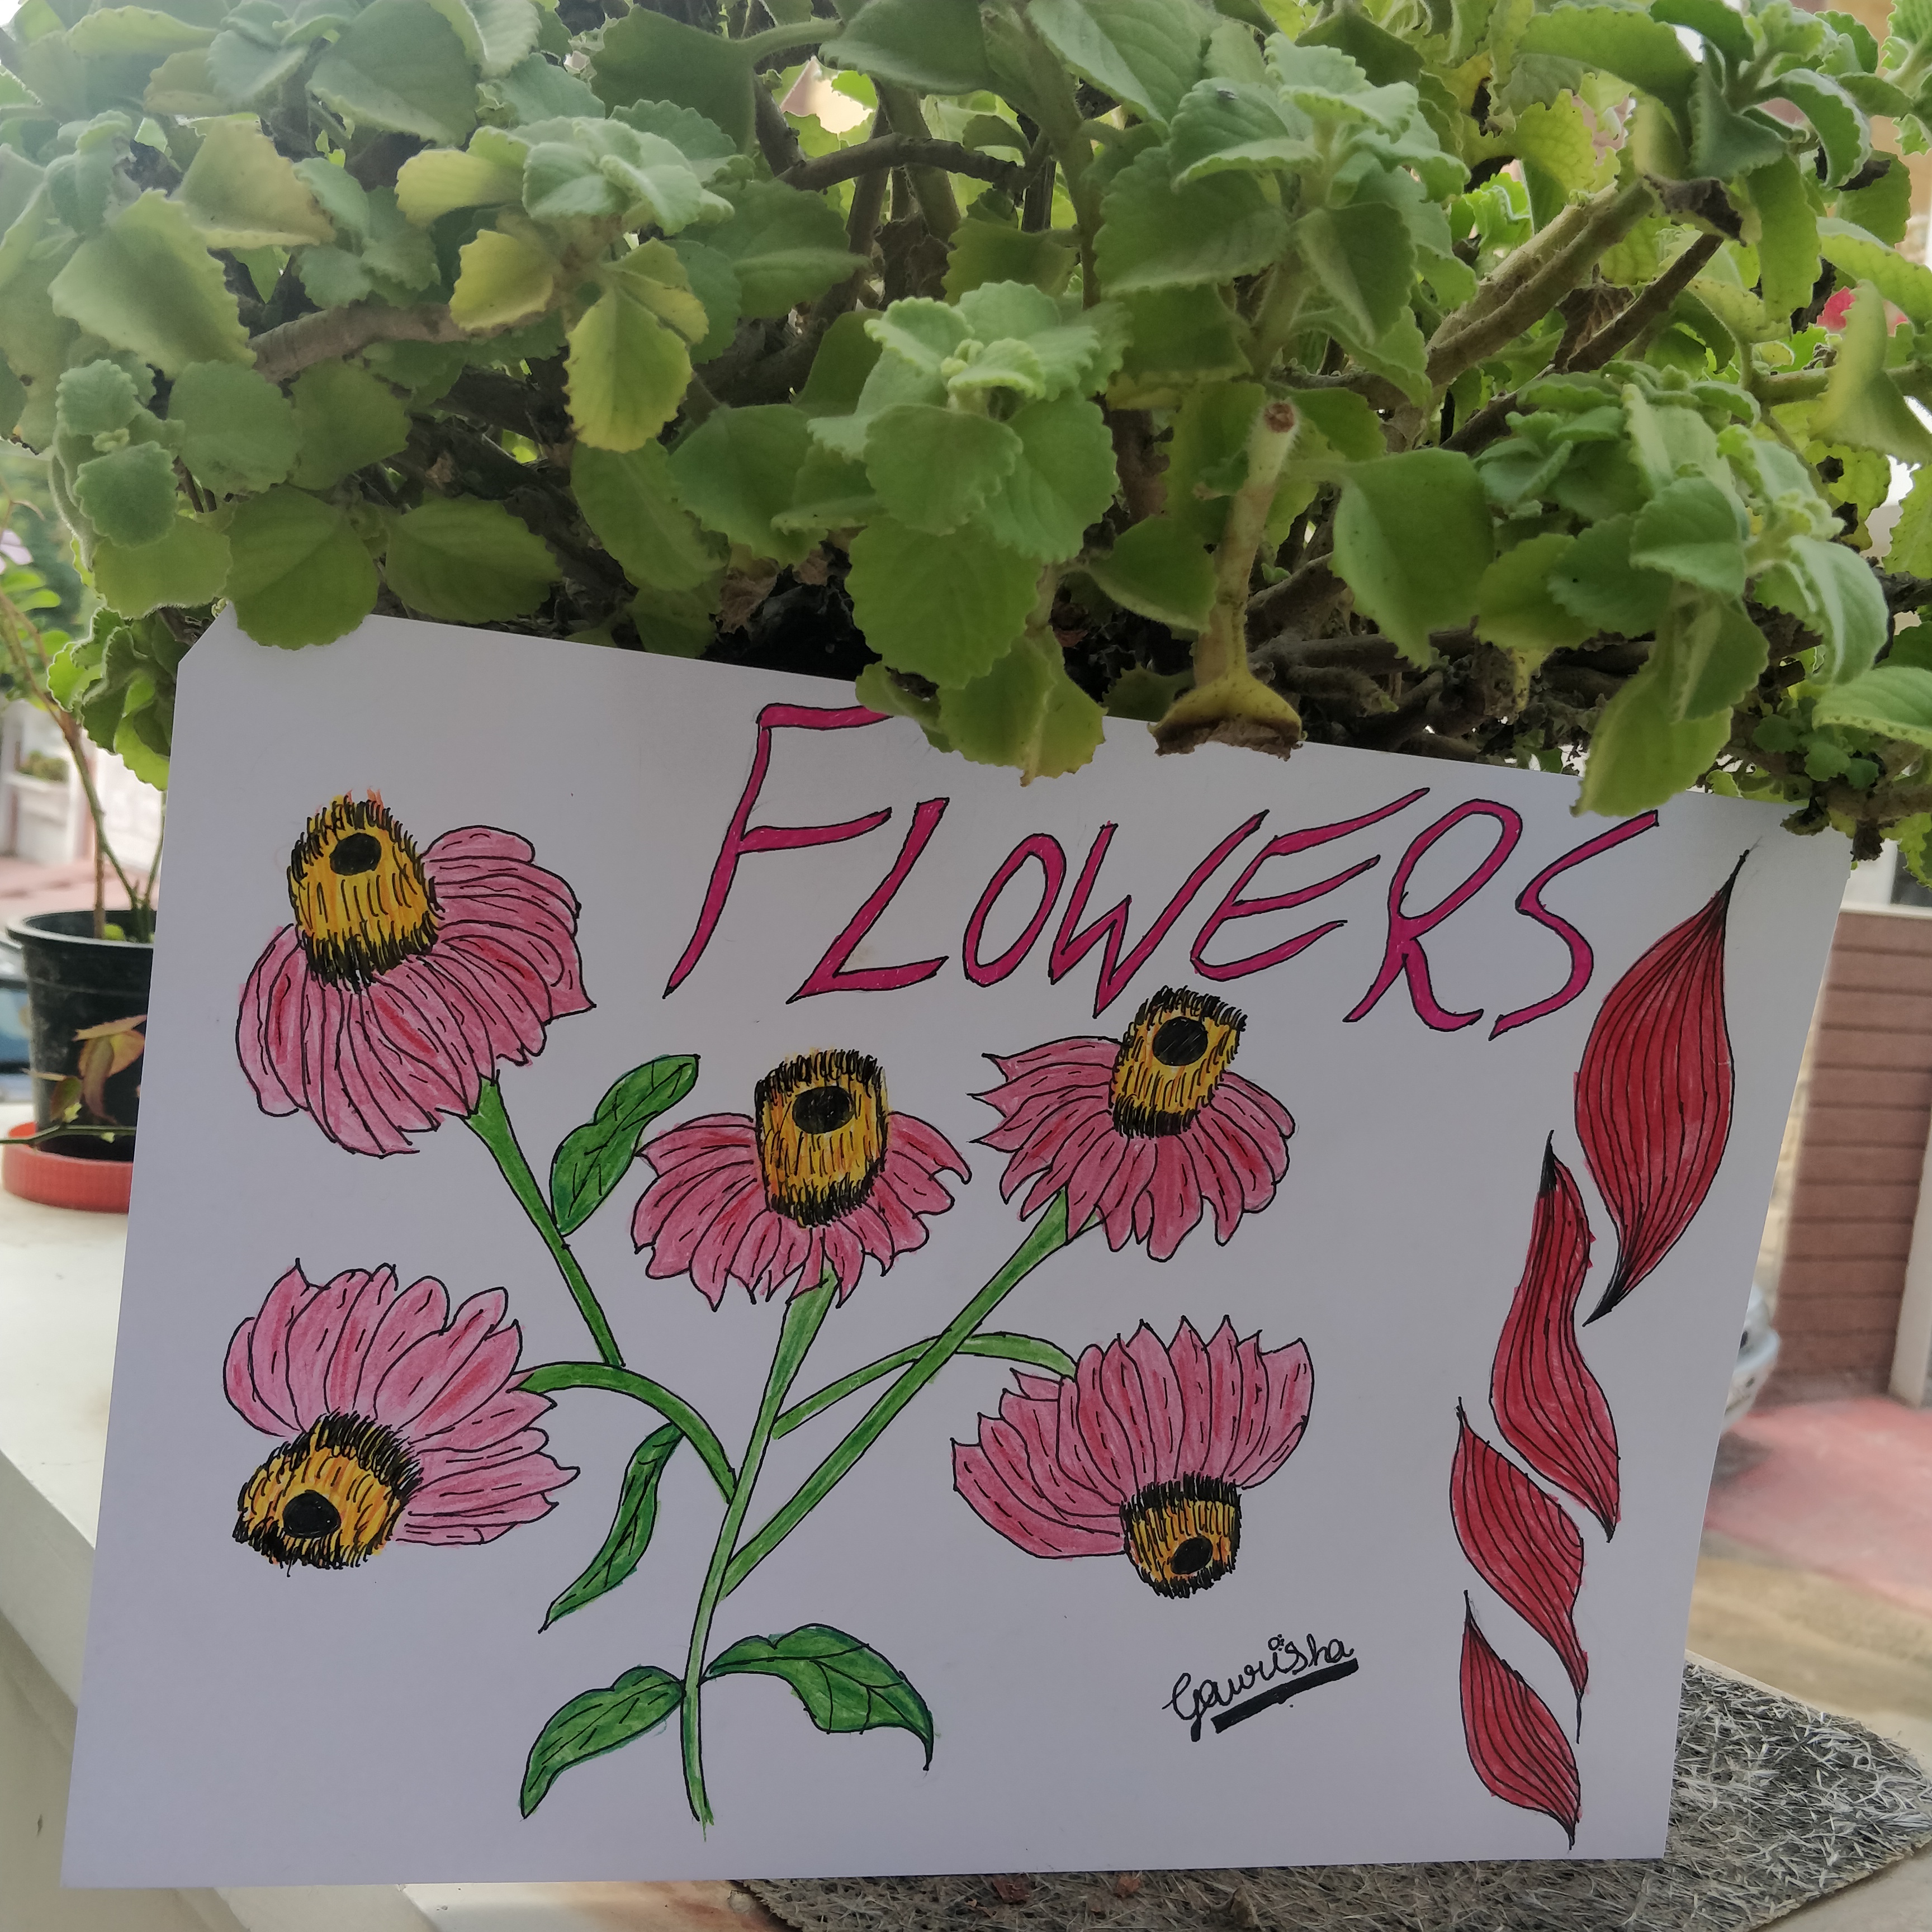 FLOWERS
Gaurisha